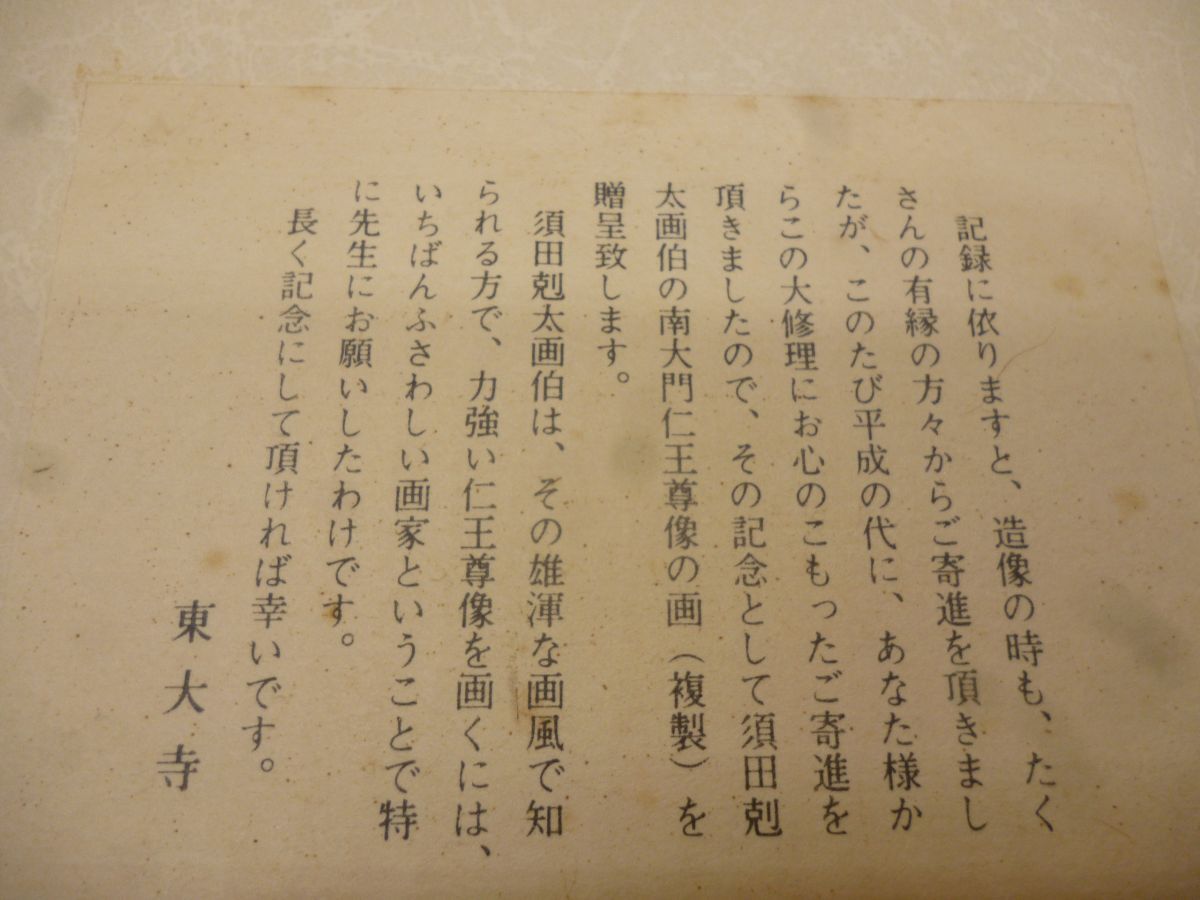 記録に依りますと、造像の時も、たく
さんの有縁の方々からご寄進を頂きまし
たが、このたび平成の代に、あなた様か
らこの大修理にお心のこもったご寄進を
頂きましたので、その記念として須田剋
太画伯の南大門仁王尊像の画（複製）を
贈呈致します。
須田剋太画伯は、その雄渾な画風で知
られる方で、力強い仁王尊像を画くには、
いちばんふさわしい画家ということで特
に先生にお願いしたわけです。
長く記念にして頂ければ幸いです。
東大寺